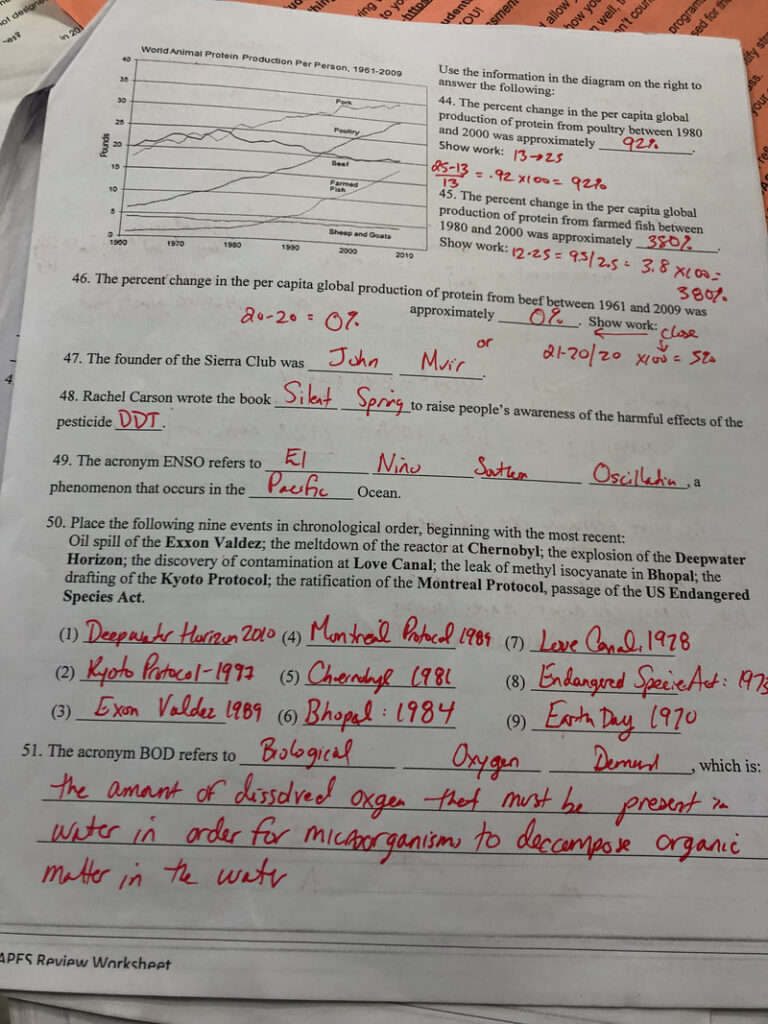 World Animal Protein Production Per Person, 1961-2009
40
35
30
25
20
15
10
5
0
Pounds
Pork
Poultry
Beef
Farmed
Fish
Sheep and Goats
1960 1970 1980 1990 2000 2010
Use the information in the diagram on the right to
answer the following:
44. The percent change in the per capita global
production of protein from poultry between 1980
and 2000 was approximately 92%.
Show work: 13→25
25-13/13 = .92 x100 = 92%
45. The percent change in the per capita global
production of protein from farmed fish between
1980 and 2000 was approximately 380%.
Show work: 12-25 = 9.5/2.5 = 3.8 x100 =
380%
46. The percent change in the per capita global production of protein from beef between 1961 and 2009 was
approximately 0%. Show work:
20-20 = 0%
close
or 21-20/20 x100 = 5%
47. The founder of the Sierra Club was John Muir.
48. Rachel Carson wrote the book Silent Spring to raise people's awareness of the harmful effects of the
pesticide DDT.
49. The acronym ENSO refers to El Nino Southern Oscillation, a
phenomenon that occurs in the Pacific Ocean.
50. Place the following nine events in chronological order, beginning with the most recent:
Oil spill of the Exxon Valdez; the meltdown of the reactor at Chernobyl; the explosion of the Deepwater
Horizon; the discovery of contamination at Love Canal; the leak of methyl isocyanate in Bhopal; the
drafting of the Kyoto Protocol; the ratification of the Montreal Protocol, passage of the US Endangered
Species Act.
(1) Deepwater Horizon 2010 (4) Montreal Protocol 1989 (7) Love Canal, 1978
(2) Kyoto Protocol-1997 (5) Chernobyl 1986 (8) Endangered Specie Act: 1973
(3) Exon Valdez 1989 (6) Bhopal: 1984 (9) Earth Day 1970
51. The acronym BOD refers to Biological Oxygen Demand, which is:
the amount of dissolved oxgen that must be present in
water in order for microorganisms to decompose organic
matter in the water
APES Review Worksheet